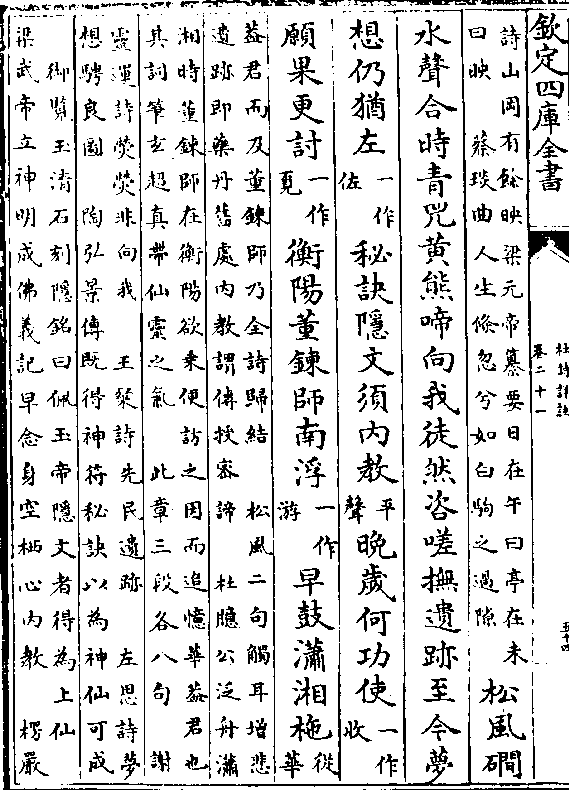 欽定四庫全書
杜詩詳註
卷二十一
五十四
詩山岡有餘映 梁元帝纂要日在午曰亭在未
曰映 蔡琰曲人生倐忽兮如白駒之過隙
松風磵
水聲合時青兕黄熊啼向我徒然咨嗟撫遺跡至今夢
想仍猶左一作佐秘訣隱文須内教平聲晚歲何功使一作收
願果更討一作覓衡陽董鍊師南浮一作游早鼓瀟湘柂從華
葢君而及董鍊師乃全詩歸結 松風二句觸耳增悲
遺跡即藥丹舊處内教謂傳授密諦 杜臆公泛舟瀟
湘時董鍊師在衡陽欲乗便訪之因而追憶華葢君也
其詞筆玄超真帶仙靈之氣 此章三段各八句 謝
靈運詩熒熒非向我 王粲詩先民遺跡 左思詩夢
想騁良圖 陶弘景傳既得神符秘訣以為神仙可成
御覽玉清石刻隱銘曰佩玉帝隱文者得為上仙
梁武帝立神明成佛義記早念身空栖心内教 楞嚴